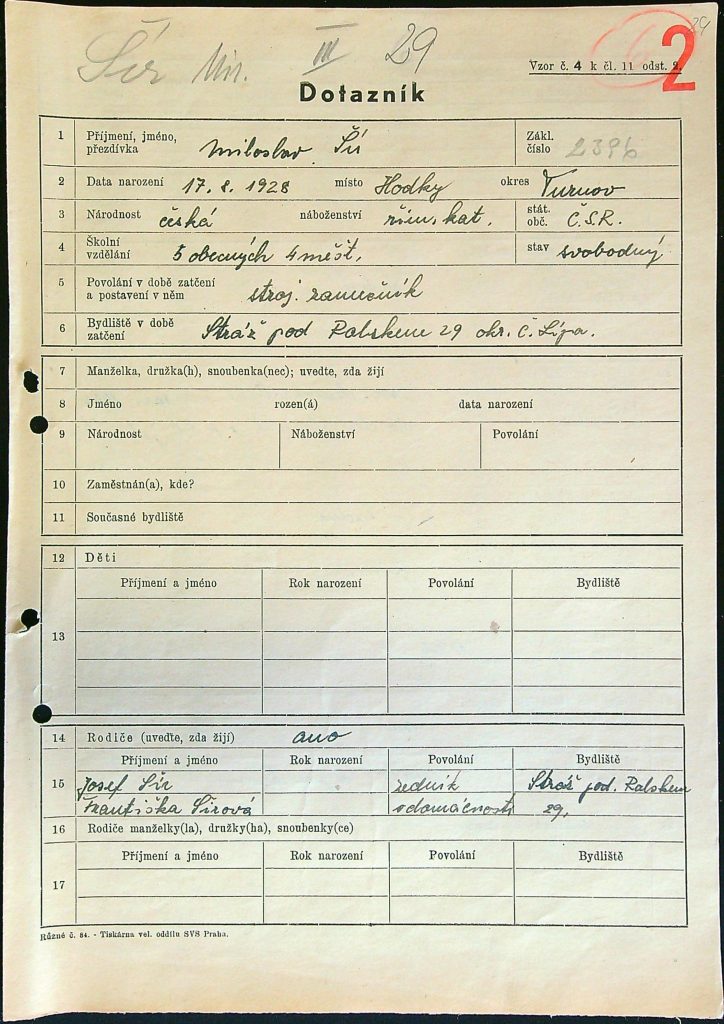 29
Šír Mir. III 29
2
Vzor č. 4 k čl. 11 odst. 2.
Dotazník
1 Příjmení, jméno, přezdívka Miloslav Šír Zákl. číslo 2396
2 Data narození 17. 8. 1928 místo Hodky okres Turnov
3 Národnost česká náboženství řím. kat. stát. obč. Č.S.R.
4 Školní vzdělání 5 obecných 4 měšť. stav svobodný
5 Povolání v době zatčení a postavení v něm stroj. zámečník
6 Bydliště v době zatčení Stráž pod Ralskem 29 okr. Č. Lípa.
7 Manželka, družka(h), snoubenka(nec); uveďte, zda žijí
8 Jméno rozen(á) data narození
9 Národnost Náboženství Povolání
10 Zaměstnán(a), kde?
11 Současné bydliště
12 Děti
Příjmení a jméno Rok narození Povolání Bydliště
13
14 Rodiče (uveďte, zda žijí) ano
Příjmení a jméno Rok narození Povolání Bydliště
15 Josef Šír zedník Stráž pod. Ralskem
Františka Šírová v domácnosti 29.
16 Rodiče manželky(la), družky(ha), snoubenky(ce)
Příjmení a jméno Rok narození Povolání Bydliště
17
Různé č. 84. - Tiskárna vel. oddílu SVS Praha.